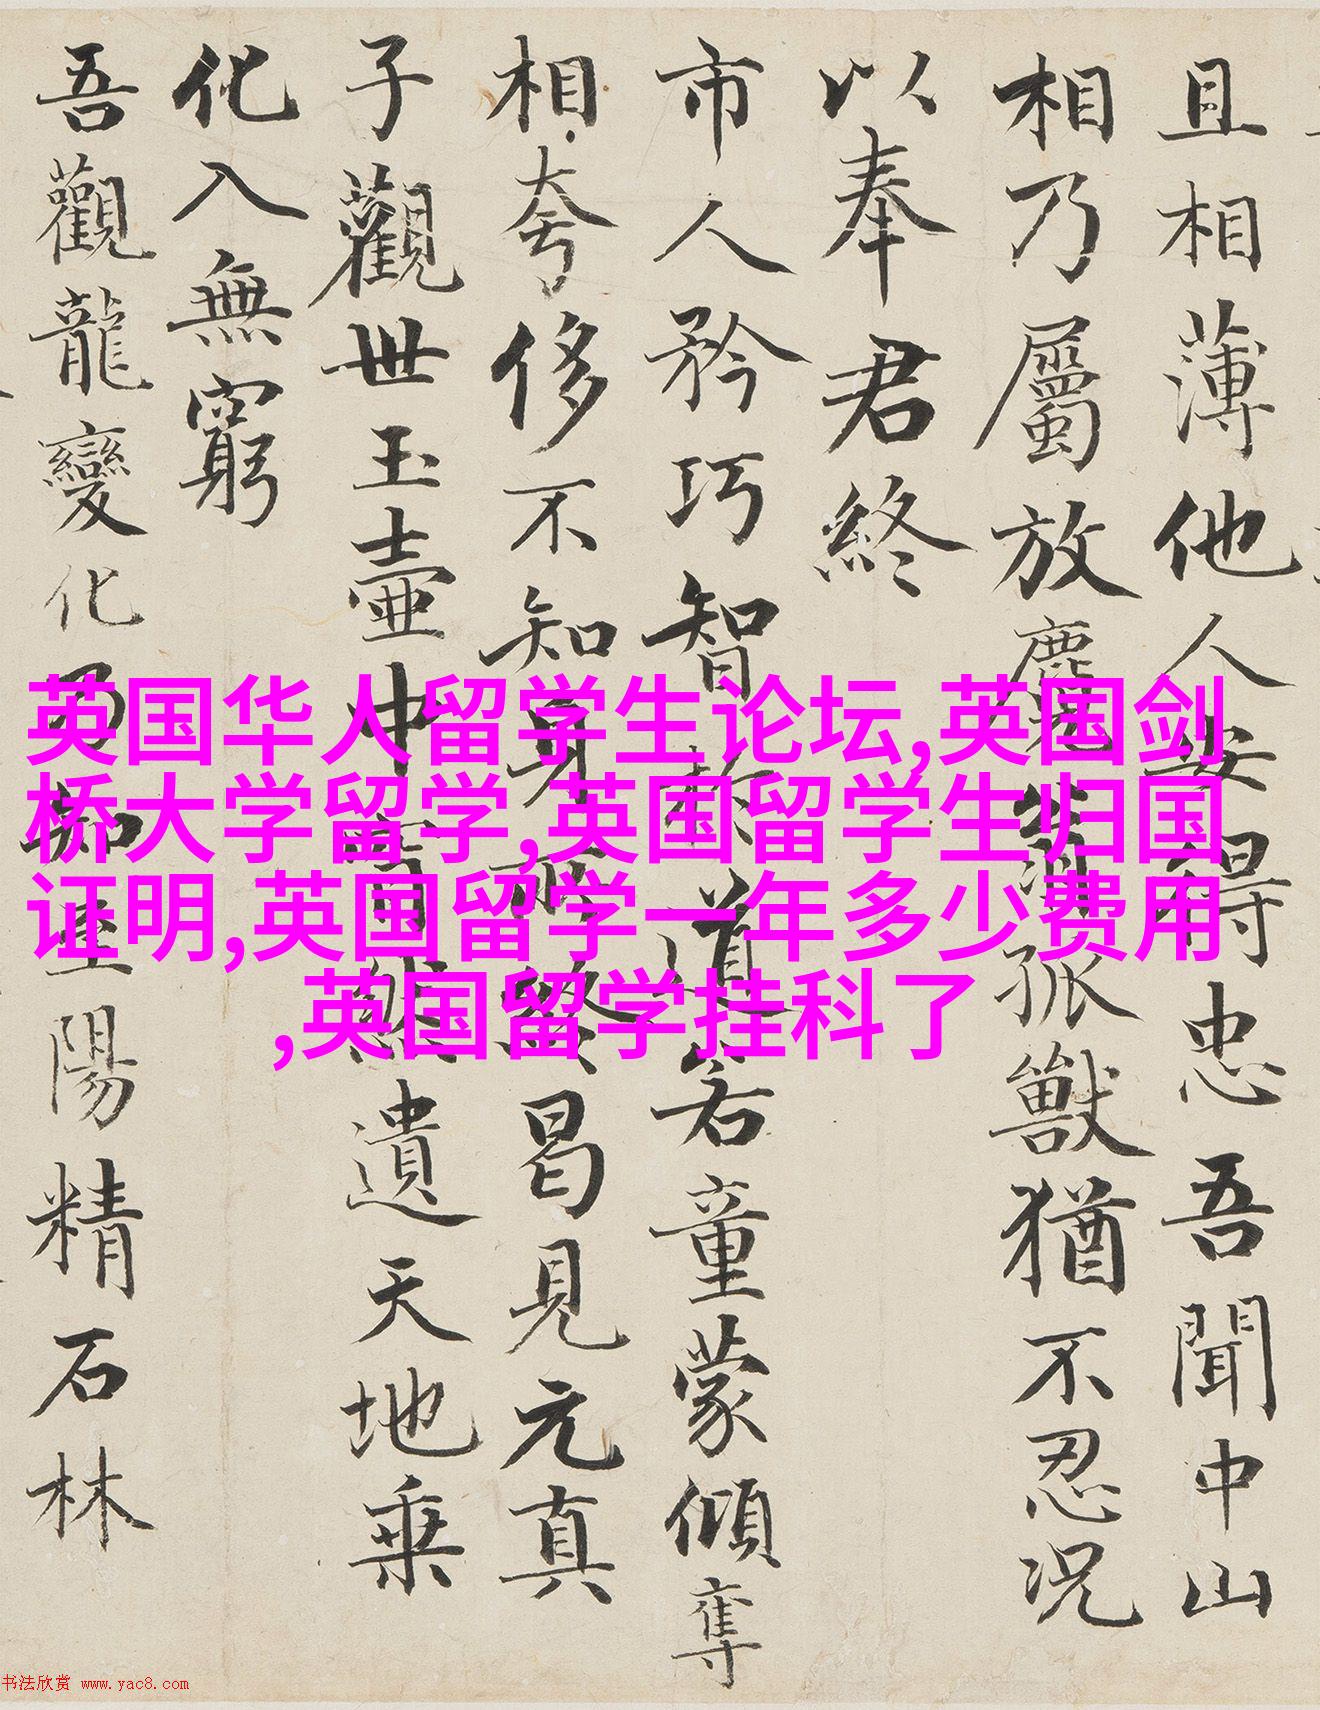 且相薄他人安得忠吾聞中山
相乃屬放麑翁孤獸猶不忍況
以奉君終
市人矜巧智於道若童蒙傾奪
相夸侈不知身所終曷見元真
子觀世玉壺中窅然遺天地乘
化入無窮
吾觀龍變化乃知至陽精石林
英国华人留学生论坛,英国剑
桥大学留学,英国留学生归国
证明,英国留学一年多少费用
,英国留学挂科了
书法欣赏 www.yac8.com